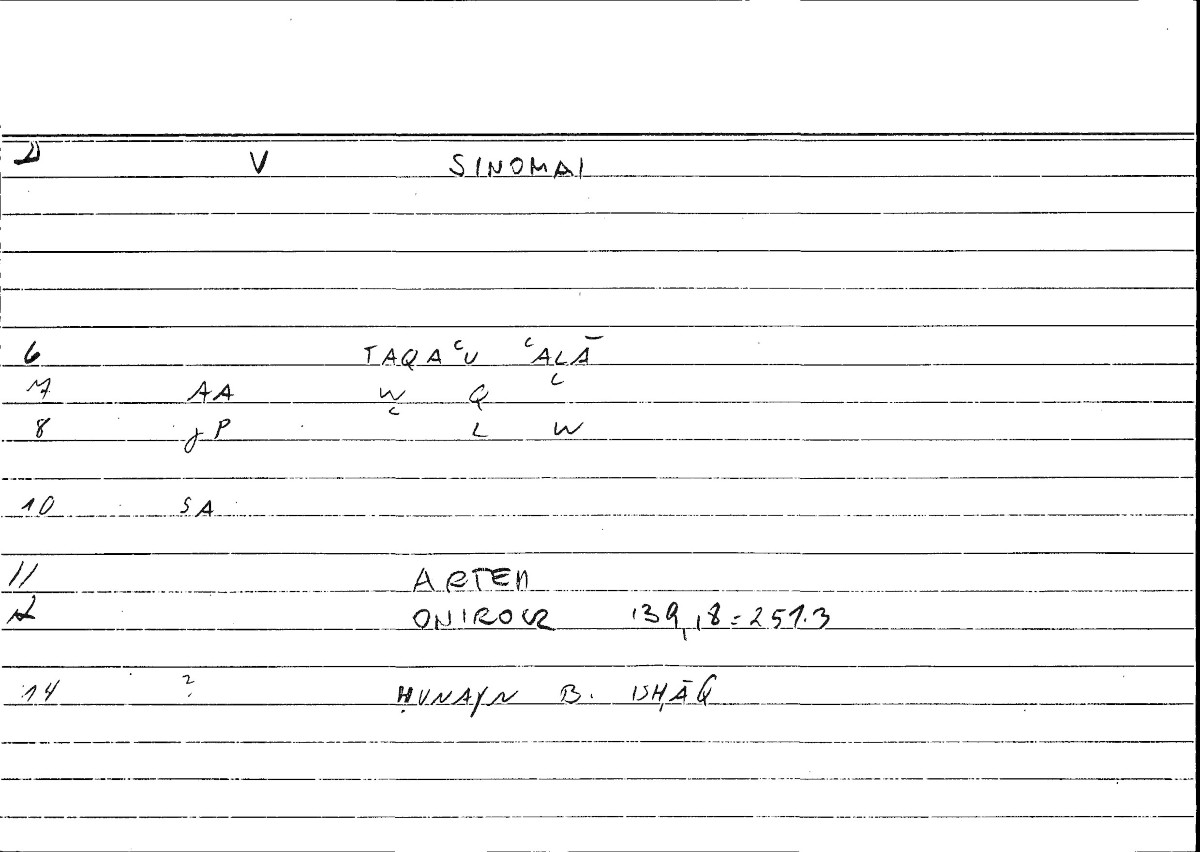 2 V SINOMAI
6 TAQAʿU ʿALĀ
7 AA W Q ʿ
8 jP ʿ L W
10 SA
11 ARTEM
12 ONIROCR 139,18=251.3
14 ? ḤUNAYN B. ISḤĀQ